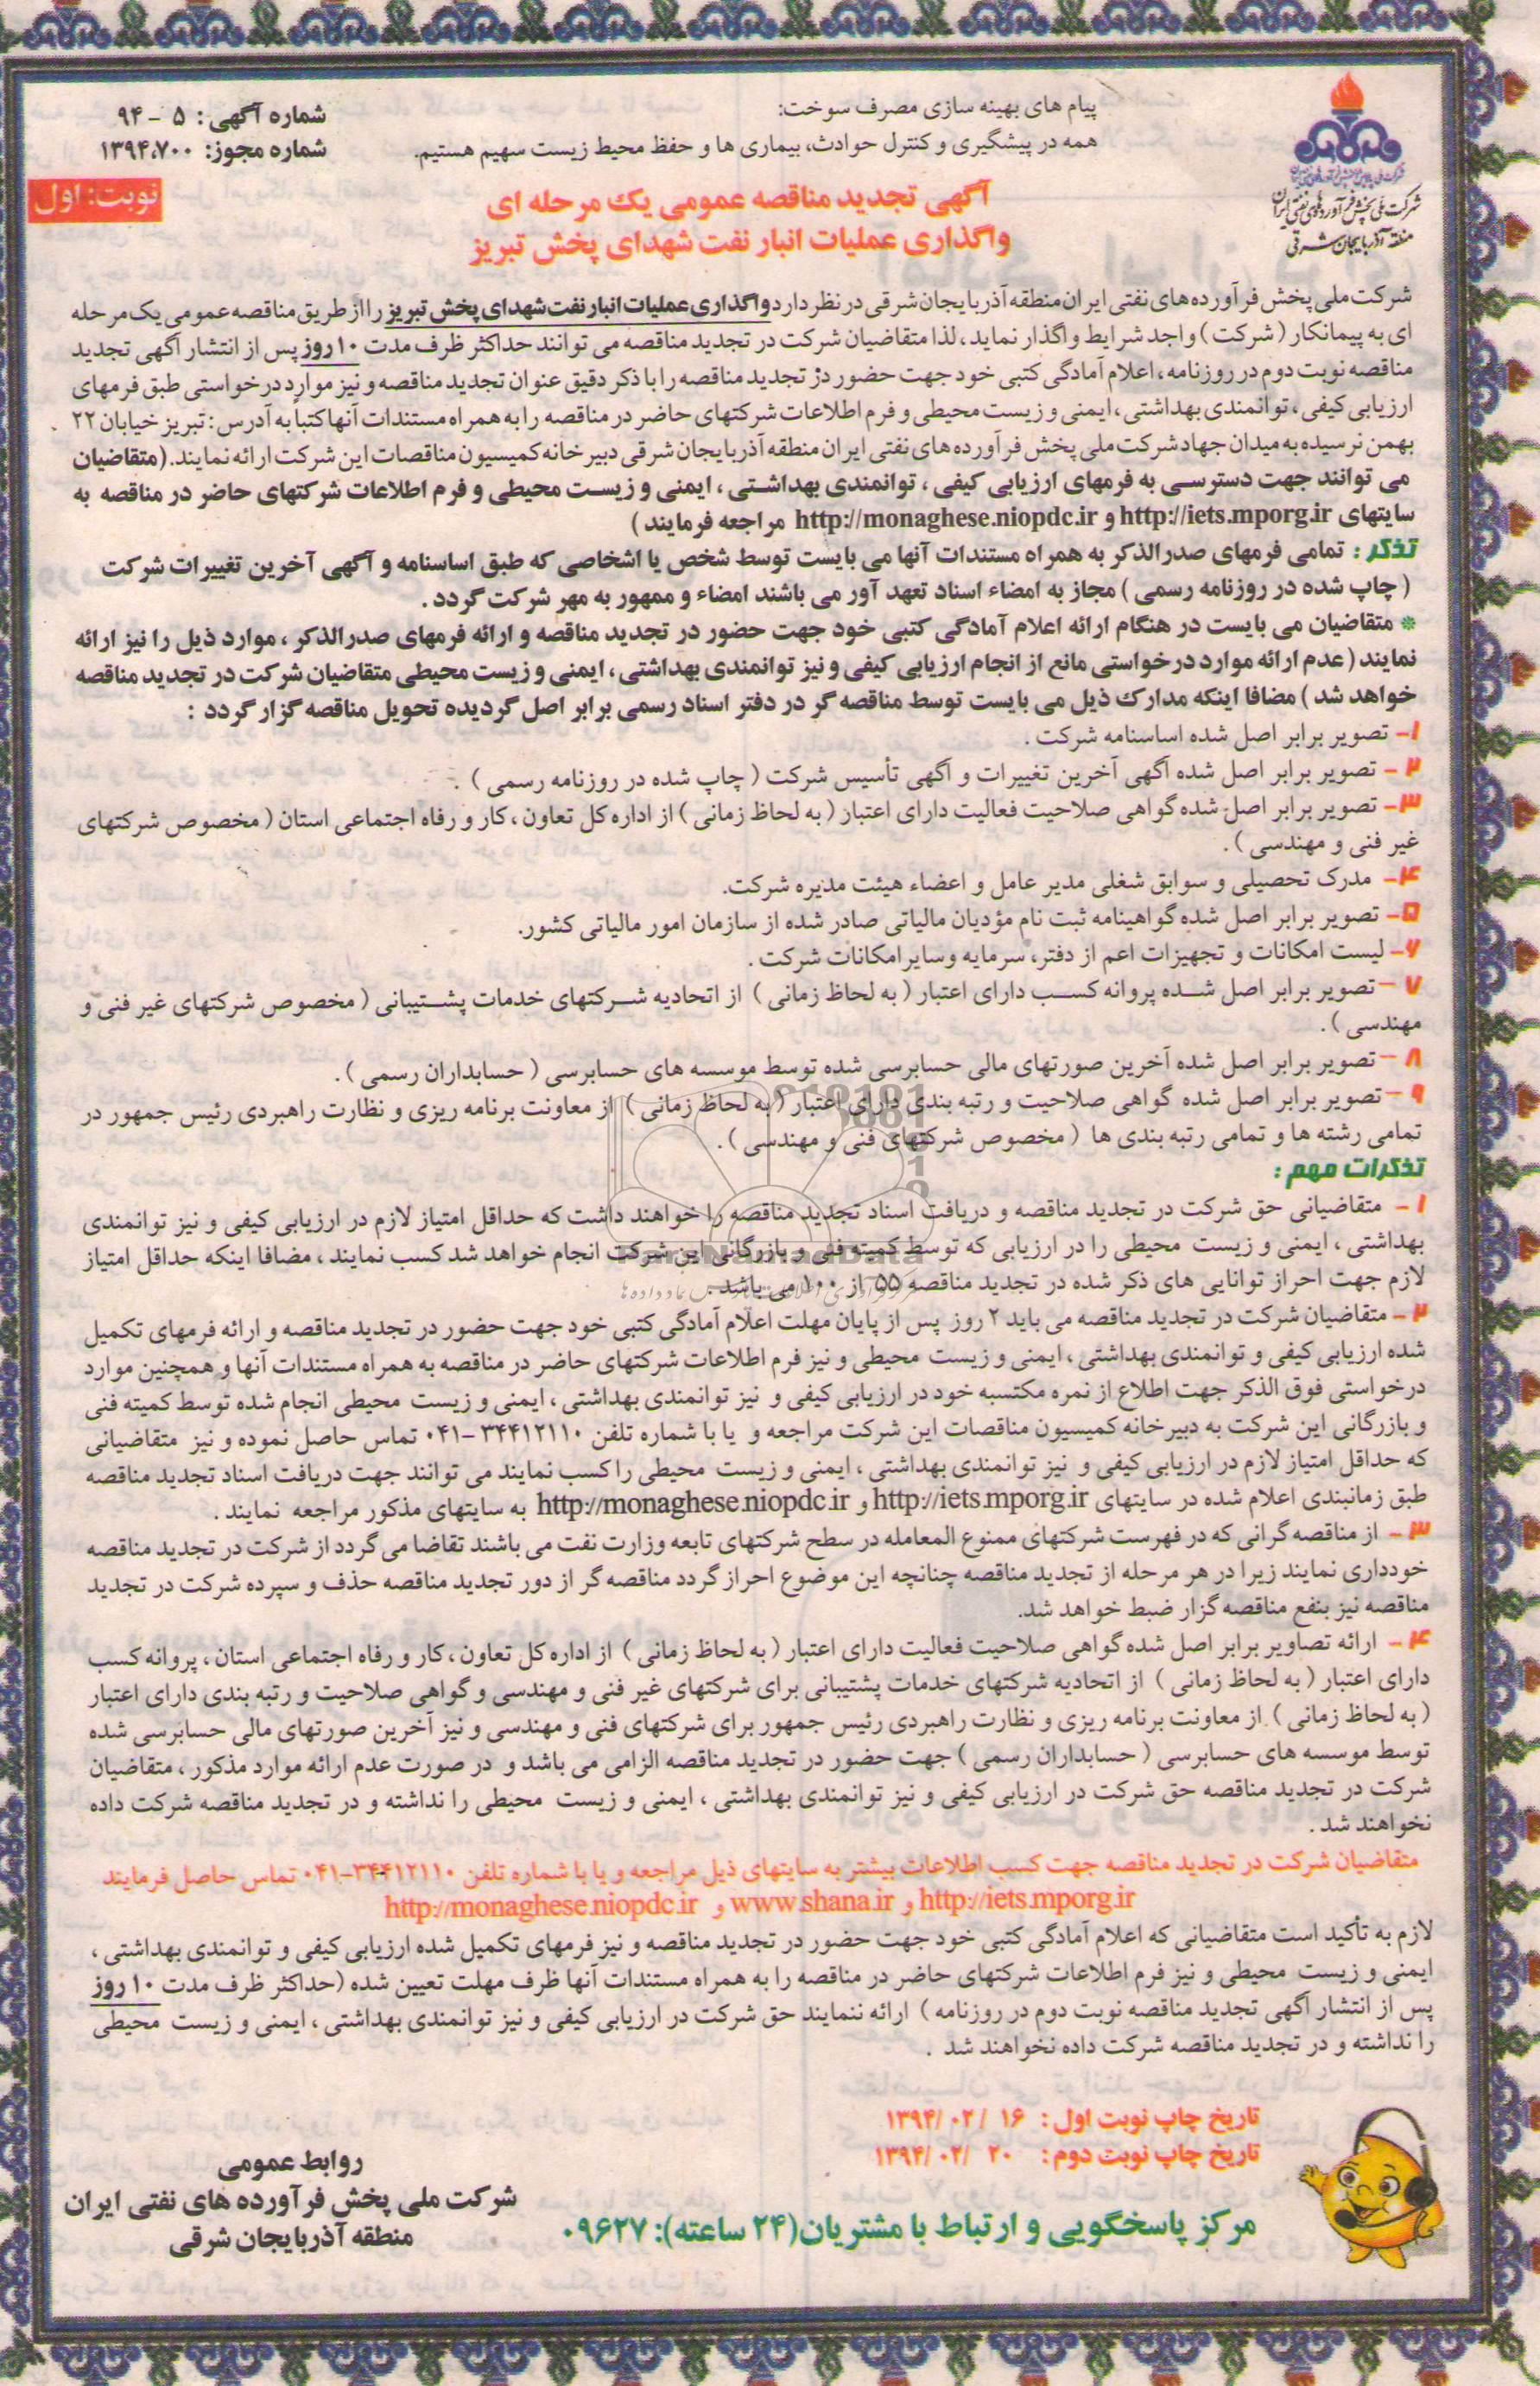 پیام های بهینه سازی مصرف سوخت:
همه در پیشگیری و کنترل حوادث، بیماری ها و حفظ محیط زیست سهیم هستیم.
شماره آگهی: ۵ - ۹۴
شماره مجوز: ۱۳۹۴،۷۰۰
نوبت: اول
شرکت ملی پخش فرآورده های نفتی ایران
منطقه آذربایجان شرقی
آگهی تجدید مناقصه عمومی یک مرحله ای
واگذاری عملیات انبار نفت شهدای پخش تبریز
شرکت ملی پخش فرآورده های نفتی ایران منطقه آذربایجان شرقی در نظر دارد واگذاری عملیات انبار نفت شهدای پخش تبریز را از طریق مناقصه عمومی یک مرحله
ای به پیمانکار ( شرکت ) واجد شرایط واگذار نماید، لذا متقاضیان شرکت در تجدید مناقصه می توانند حداکثر ظرف مدت ۱۰ روز پس از انتشار آگهی تجدید
مناقصه نوبت دوم در روزنامه، اعلام آمادگی کتبی خود جهت حضور در تجدید مناقصه را با ذکر دقیق عنوان تجدید مناقصه و نیز موارد درخواستی طبق فرمهای
ارزیابی کیفی، توانمندی بهداشتی، ایمنی و زیست محیطی و فرم اطلاعات شرکتهای حاضر در مناقصه را به همراه مستندات آنها کتباً به آدرس: تبریز خیابان ۲۲
بهمن نرسیده به میدان جهاد شرکت ملی پخش فرآورده های نفتی ایران منطقه آذربایجان شرقی دبیرخانه کمیسیون مناقصات این شرکت ارائه نمایند. (متقاضیان
می توانند جهت دسترسی به فرمهای ارزیابی کیفی ، توانمندی بهداشتی ، ایمنی و زیست محیطی و فرم اطلاعات شرکتهای حاضر در مناقصه به
سایتهای http://iets.mporg.ir و http://monaghese.niopdc.ir مراجعه فرمایند )
تذکر : تمامی فرمهای صدرالذکر به همراه مستندات آنها می بایست توسط شخص یا اشخاصی که طبق اساسنامه و آگهی آخرین تغییرات شرکت
( چاپ شده در روزنامه رسمی ) مجاز به امضاء اسناد تعهد آور می باشند امضاء و ممهور به مهر شرکت گردد .
* متقاضیان می بایست در هنگام ارائه اعلام آمادگی کتبی خود جهت حضور در تجدید مناقصه و ارائه فرمهای صدرالذکر ، موارد ذیل را نیز ارائه
نمایند ( عدم ارائه موارد درخواستی مانع از انجام ارزیابی کیفی و نیز توانمندی بهداشتی ، ایمنی و زیست محیطی متقاضیان شرکت در تجدید مناقصه
خواهد شد ) مضافا اینکه مدارک ذیل می بایست توسط مناقصه گر در دفتر اسناد رسمی برابر اصل گردیده تحویل مناقصه گزار گردد :
۱- تصویر برابر اصل شده اساسنامه شرکت .
۲ - تصویر برابر اصل شده آگهی آخرین تغییرات و آگهی تأسیس شرکت ( چاپ شده در روزنامه رسمی ) .
۳- تصویر برابر اصل شده گواهی صلاحیت فعالیت دارای اعتبار ( به لحاظ زمانی ) از اداره کل تعاون ، کار و رفاه اجتماعی استان ( مخصوص شرکتهای
غیر فنی و مهندسی ).
۴- مدرک تحصیلی و سوابق شغلی مدیر عامل و اعضاء هیئت مدیره شرکت.
۵- تصویر برابر اصل شده گواهینامه ثبت نام مؤدیان مالیاتی صادر شده از سازمان امور مالیاتی کشور.
۶- لیست امکانات و تجهیزات اعم از دفتر، سرمایه و سایر امکانات شرکت .
۷ - تصویر برابر اصل شده پروانه کسب دارای اعتبار ( به لحاظ زمانی ) از اتحادیه شرکتهای خدمات پشتیبانی ( مخصوص شرکتهای غیر فنی و
مهندسی ).
۸ - تصویر برابر اصل شده آخرین صورتهای مالی حسابرسی شده توسط موسسه های حسابرسی ( حسابداران رسمی ).
۹ - تصویر برابر اصل شده گواهی صلاحیت و رتبه بندی دارای اعتبار ( به لحاظ زمانی ) از معاونت برنامه ریزی و نظارت راهبردی رئیس جمهور در
تمامی رشته ها و تمامی رتبه بندی ها ( مخصوص شرکتهای فنی و مهندسی ).
تذکرات مهم :
۱- متقاضیانی حق شرکت در تجدید مناقصه و دریافت اسناد تجدید مناقصه را خواهند داشت که حداقل امتیاز لازم در ارزیابی کیفی و نیز توانمندی
بهداشتی ، ایمنی و زیست محیطی را در ارزیابی که توسط کمیته فنی و بازرگانی این شرکت انجام خواهد شد کسب نمایند ، مضافا اینکه حداقل امتیاز
لازم جهت احراز توانایی های ذکر شده در تجدید مناقصه ۵۵ از ۱۰۰ می باشد .
۲- متقاضیان شرکت در تجدید مناقصه می باید ۲ روز پس از پایان مهلت اعلام آمادگی کتبی خود جهت حضور در تجدید مناقصه و ارائه فرمهای تکمیل
شده ارزیابی کیفی و توانمندی بهداشتی ، ایمنی و زیست محیطی و نیز فرم اطلاعات شرکتهای حاضر در مناقصه به همراه مستندات آنها و همچنین موارد
درخواستی فوق الذکر جهت اطلاع از نمره مکتسبه خود در ارزیابی کیفی و نیز توانمندی بهداشتی ، ایمنی و زیست محیطی انجام شده توسط کمیته فنی
و بازرگانی این شرکت به دبیرخانه کمیسیون مناقصات این شرکت مراجعه و یا با شماره تلفن ۳۴۴۱۲۱۱۰ -۰۴۱ تماس حاصل نموده و نیز متقاضیانی
که حداقل امتیاز لازم در ارزیابی کیفی و نیز توانمندی بهداشتی ، ایمنی و زیست محیطی را کسب نمایند می توانند جهت دریافت اسناد تجدید مناقصه
طبق زمانبندی اعلام شده در سایتهای http://iets.mporg.ir و http://monaghese.niopdc.ir به سایتهای مذکور مراجعه نمایند .
۳- از مناقصه گرانی که در فهرست شرکتهای ممنوع المعامله در سطح شرکتهای تابعه وزارت نفت می باشند تقاضا می گردد از شرکت در تجدید مناقصه
خودداری نمایند زیرا در هر مرحله از تجدید مناقصه چنانچه این موضوع احراز گردد مناقصه گر از دور تجدید مناقصه حذف و سپرده شرکت در تجدید
مناقصه نیز بنفع مناقصه گزار ضبط خواهد شد.
۴- ارائه تصاویر برابر اصل شده گواهی صلاحیت فعالیت دارای اعتبار ( به لحاظ زمانی ) از اداره کل تعاون ، کار و رفاه اجتماعی استان ، پروانه کسب
دارای اعتبار ( به لحاظ زمانی ) از اتحادیه شرکتهای خدمات پشتیبانی برای شرکتهای غیر فنی و مهندسی و گواهی صلاحیت و رتبه بندی دارای اعتبار
( به لحاظ زمانی ) از معاونت برنامه ریزی و نظارت راهبردی رئیس جمهور برای شرکتهای فنی و مهندسی و نیز آخرین صورتهای مالی حسابرسی شده
توسط موسسه های حسابرسی ( حسابداران رسمی ) جهت حضور در تجدید مناقصه الزامی می باشد و در صورت عدم ارائه موارد مذکور ، متقاضیان
شرکت در تجدید مناقصه حق شرکت در ارزیابی کیفی و نیز توانمندی بهداشتی ، ایمنی و زیست محیطی را نداشته و در تجدید مناقصه شرکت داده
نخواهند شد .
متقاضیان شرکت در تجدید مناقصه جهت کسب اطلاعات بیشتر به سایتهای ذیل مراجعه و یا با شماره تلفن ۳۴۴۱۲۱۱۰-۰۴۱ تماس حاصل فرمایند
http://iets.mporg.ir و www.shana.ir و http://monaghese.niopdc.ir
لازم به تأکید است متقاضیانی که اعلام آمادگی کتبی خود جهت حضور در تجدید مناقصه و نیز فرمهای تکمیل شده ارزیابی کیفی و توانمندی بهداشتی ،
ایمنی و زیست محیطی و نیز فرم اطلاعات شرکتهای حاضر در مناقصه را به همراه مستندات آنها ظرف مهلت تعیین شده (حداکثر ظرف مدت ۱۰ روز
پس از انتشار آگهی تجدید مناقصه نوبت دوم در روزنامه ) ارائه ننمایند حق شرکت در ارزیابی کیفی و نیز توانمندی بهداشتی ، ایمنی و زیست محیطی
را نداشته و در تجدید مناقصه شرکت داده نخواهند شد .
تاریخ چاپ نوبت اول : ۱۶ /۱۳۹۴/۰۲
تاریخ چاپ نوبت دوم : ۲۰ /۱۳۹۴/۰۲
مرکز پاسخگویی و ارتباط با مشتریان(۲۴ ساعته): ۰۹۶۲۷
روابط عمومی
شرکت ملی پخش فرآورده های نفتی ایران
منطقه آذربایجان شرقی